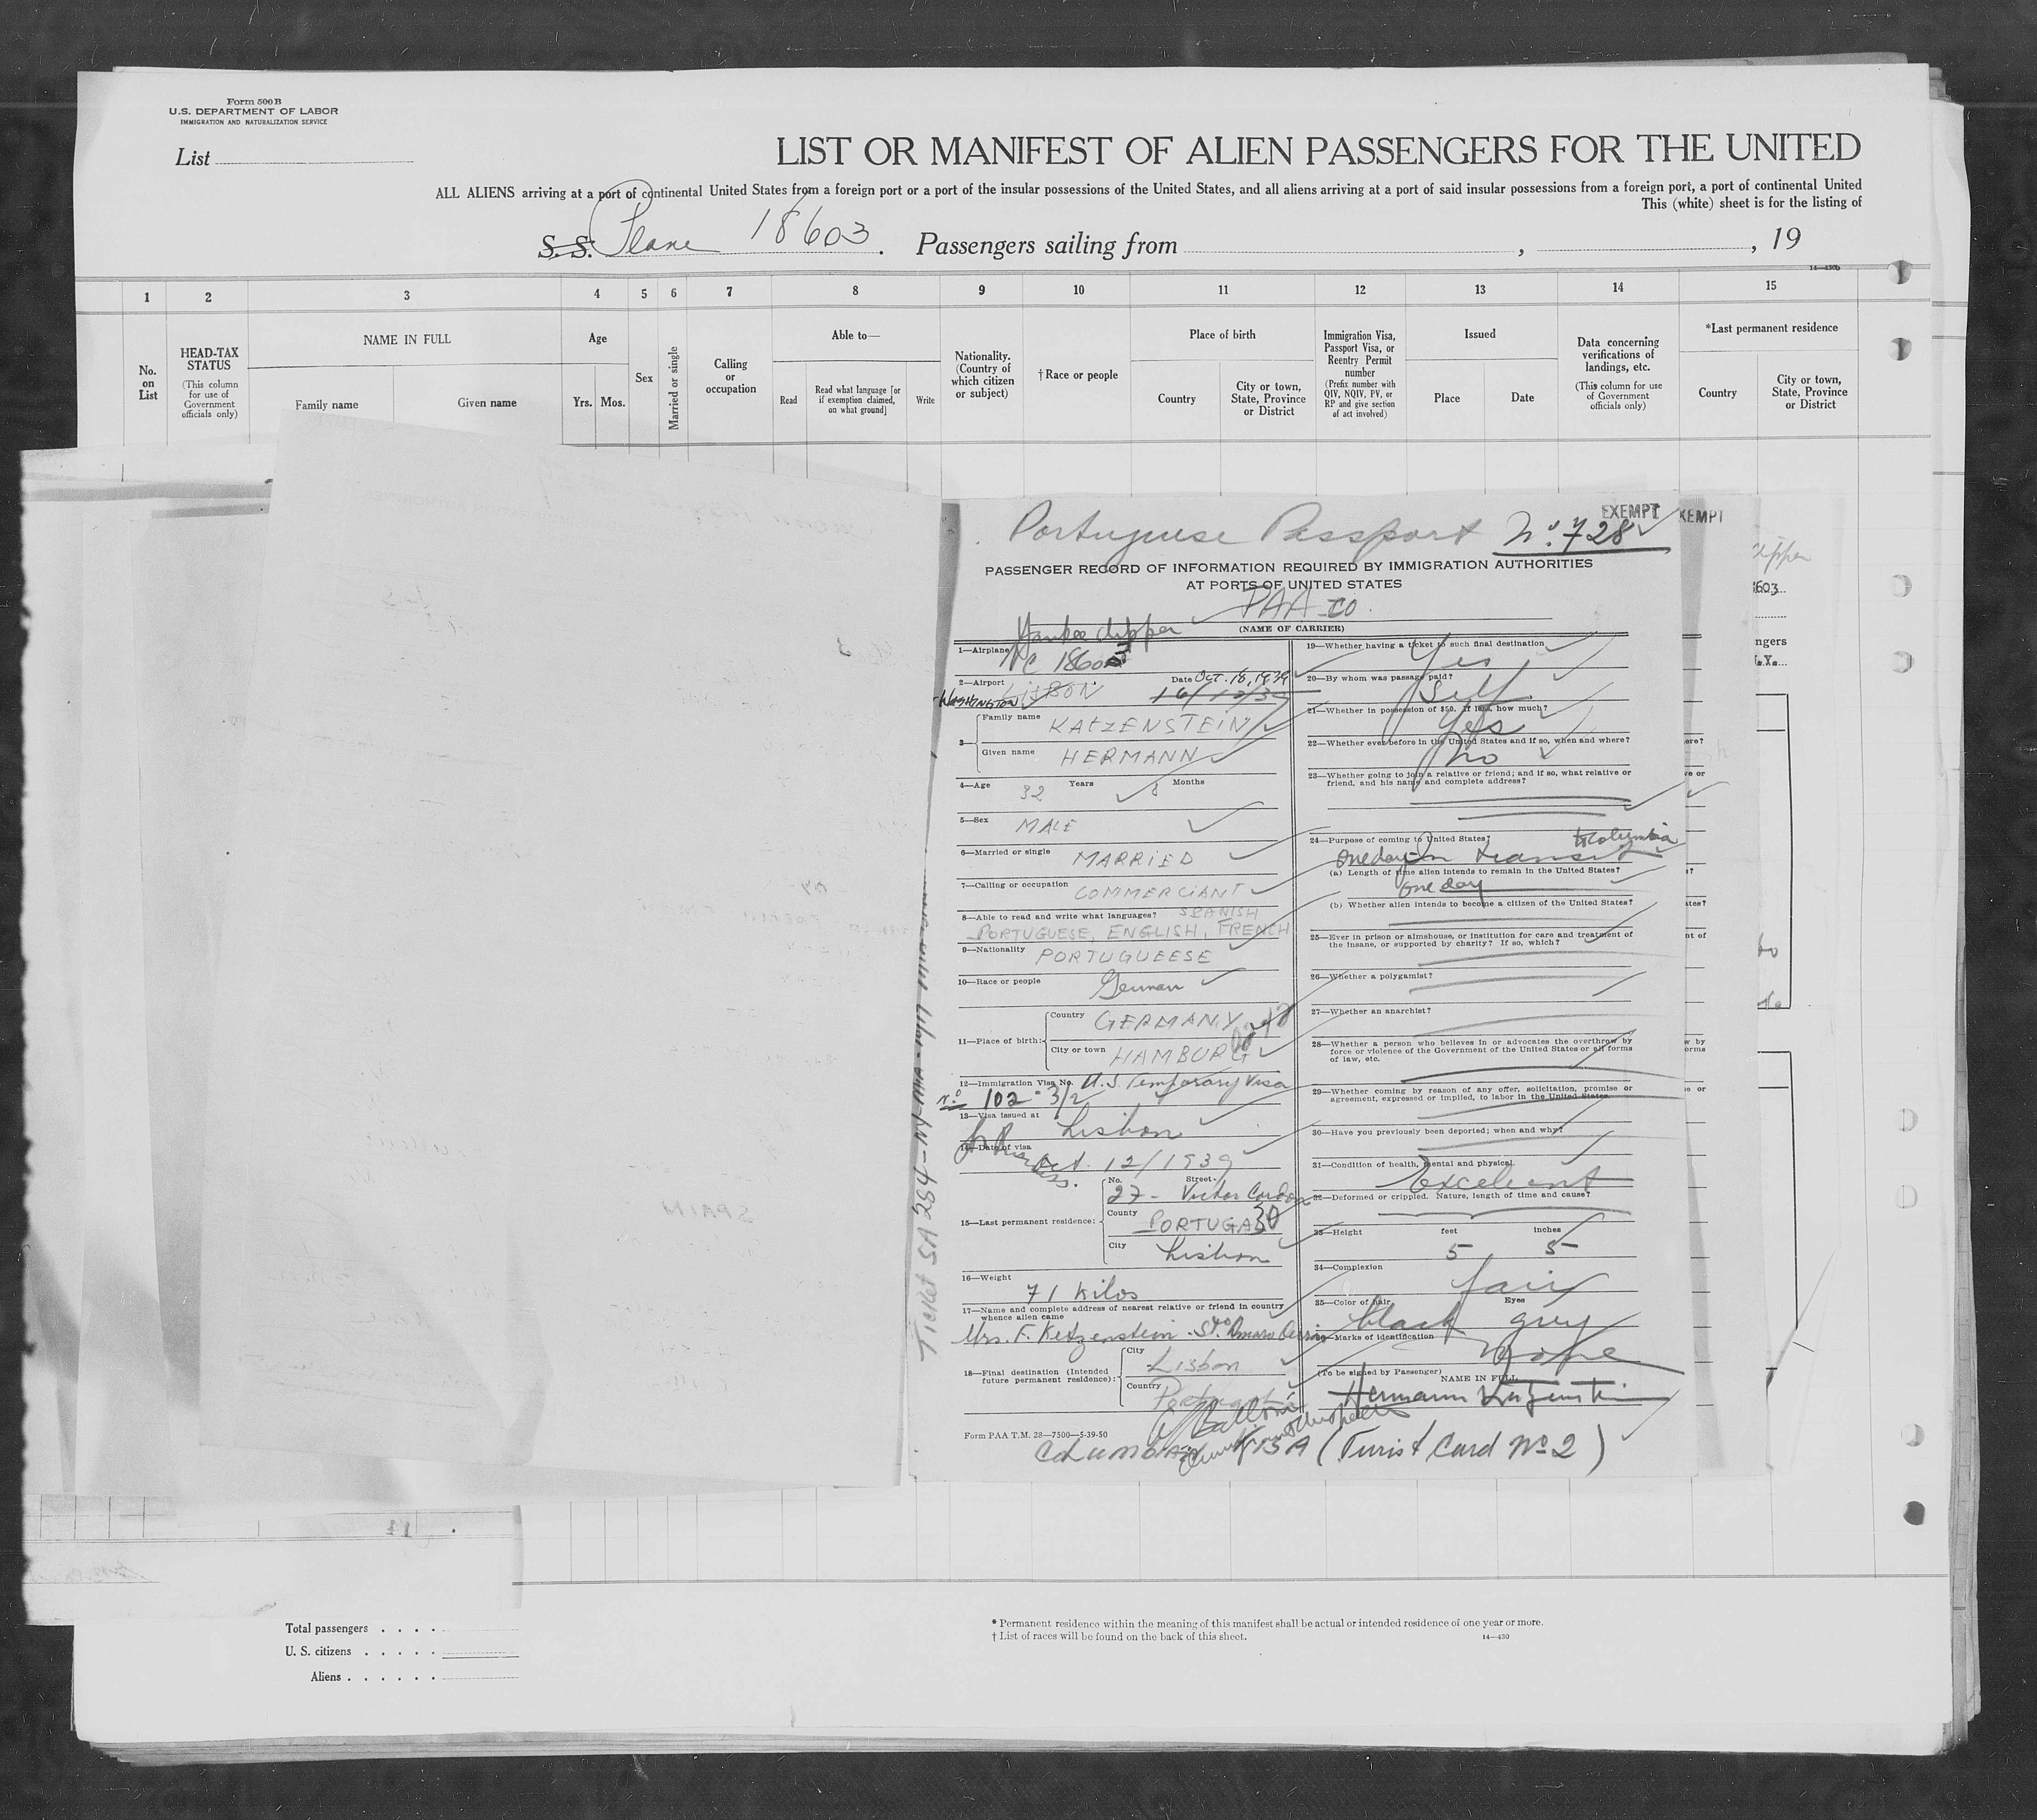 Form 500 B
U.S. DEPARTMENT OF LABOR
IMMIGRATION AND NATURALIZATION SERVICE
List
LIST OR MANIFEST OF ALIEN PASSENGERS FOR THE UNITED
ALL ALIENS arriving at a port of continental United States from a foreign port or a port of the insular possessions of the United States, and all aliens arriving at a port of said insular possessions from a foreign port, a port of continental United
This (white) sheet is for the listing of
S. S. Plane 18603. Passengers sailing from , , 19
14—430b
1 2 3 4 5 6 7 8 9 10 11 12 13 14 15
No. on List
HEAD-TAX STATUS
(This column for use of Government officials only)
NAME IN FULL
Family name Given name
Age
Yrs. Mos.
Sex
Married or single
Calling or occupation
Able to—
Read
Read what language [or if exemption claimed, on what ground]
Write
Nationality. (Country of which citizen or subject)
†Race or people
Place of birth
Country
City or town, State, Province or District
Immigration Visa, Passport Visa, or Reentry Permit number
(Prefix number with QIV, NQIV, PV, or RP and give section of act involved)
Issued
Place Date
Data concerning verifications of landings, etc.
(This column for use of Government officials only)
*Last permanent residence
Country
City or town, State, Province or District
EXEMPT
KEMPT
Portuguese Passport No. 728
PASSENGER RECORD OF INFORMATION REQUIRED BY IMMIGRATION AUTHORITIES
AT PORTS OF UNITED STATES
PAA Co.
Yankee Clipper
(NAME OF CARRIER)
1—Airplane NC 1860
2—Airport LISBON Date Oct. 18, 1939
WASHINGTON 16/10/39
3— Family name KATZENSTEIN
Given name HERMANN
4—Age 32 Years 8 Months
5—Sex MALE
6—Married or single MARRIED
7—Calling or occupation COMMERCIANT
8—Able to read and write what languages? SPANISH
PORTUGUESE, ENGLISH, FRENCH
9—Nationality PORTUGUEESE
10—Race or people German
11—Place of birth: Country GERMANY
City or town HAMBURG
12—Immigration Visa No. U.S. Temporary Visa
No. 102 - 3/2
13—Visa issued at Lisbon
14—Date of visa Oct. 12/1939
15—Last permanent residence: No. Street 27 - Victor Cordon 30
County PORTUGAL
City Lisbon
16—Weight 71 Kilos
17—Name and complete address of nearest relative or friend in country
whence alien came
Mrs. F. Ketzenstein - Sto. Amaro
18—Final destination (Intended future permanent residence): City Lisbon
Country Portugal
Form PAA T.M. 28—7500—5-39-50
19—Whether having a ticket to such final destination Yes
20—By whom was passage paid? Self
21—Whether in possession of $50. If less, how much? Yes
22—Whether ever before in the United States and if so, when and where? No
23—Whether going to join a relative or friend; and if so, what relative or
friend, and his name and complete address?
24—Purpose of coming to United States? to Columbia
one day in transit
(a) Length of time alien intends to remain in the United States?
one day
(b) Whether alien intends to become a citizen of the United States?
25—Ever in prison or almshouse, or institution for care and treatment of
the insane, or supported by charity? If so, which?
26—Whether a polygamist?
27—Whether an anarchist?
28—Whether a person who believes in or advocates the overthrow by
force or violence of the Government of the United States or all forms
of law, etc.
29—Whether coming by reason of any offer, solicitation, promise or
agreement, expressed or implied, to labor in the United States.
30—Have you previously been deported; when and why?
31—Condition of health, mental and physical Excelent
32—Deformed or crippled. Nature, length of time and cause?
33—Height feet 5 inches 5
34—Complexion fair
35—Color of hair black Eyes grey
36—Marks of identification None
(To be signed by Passenger)
NAME IN FULL
Hermann Katzenstein
COLUMBIAN VISA (Turist Card No 2)
Total passengers
U. S. citizens
Aliens
* Permanent residence within the meaning of this manifest shall be actual or intended residence of one year or more.
† List of races will be found on the back of this sheet.
14—430